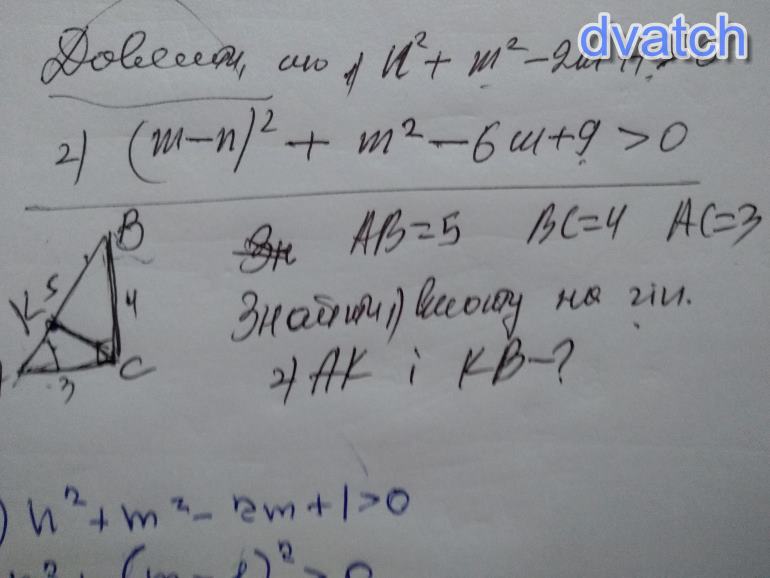 dvatch
Довести, що 1) n² + m² - 2m
2) (m-n)² + m² - 6m+9 >0
B
Зн AB=5 BC=4 AC=3
5
K
4
Знайти 1) висоту на гіп.
C
3
2) AK і KB-?
) n² + m² - 2m + 1 >0